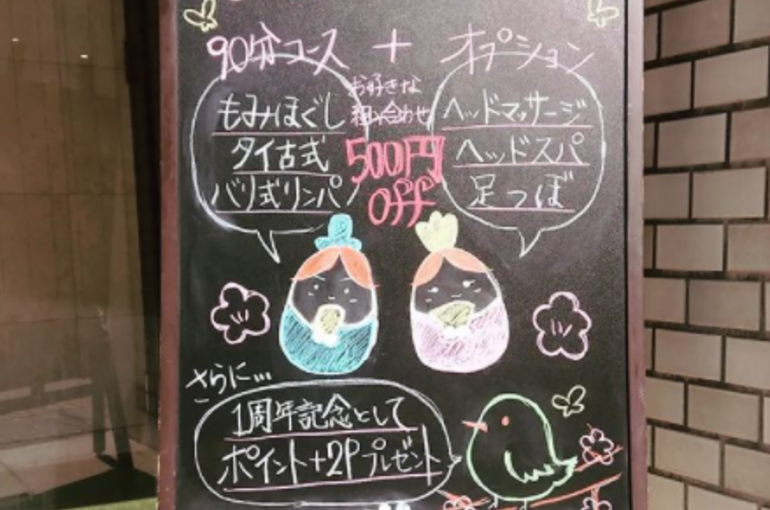 90分コース + オプション
もみほぐし
タイ古式
バリ式リンパ
お好きな
組み合わせ
500円
off
ヘッドマッサージ
ヘッドスパ
足つぼ
さらに…
1周年記念として
ポイント+2Pプレゼント